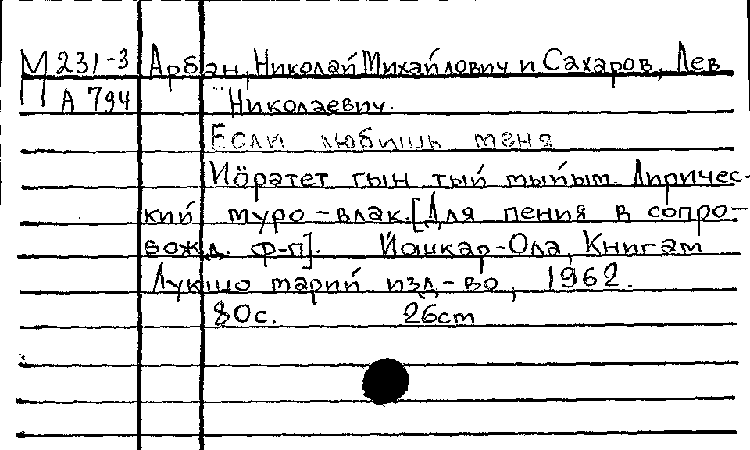 М 231-3 Арбан, Николай Михайлович и Сахаров, Лев
А 794 Николаевич.
Если любишь меня
Йӧратет гын тый мыйым. Лиричес-
кий муро-влак. [Для пения в сопро-
вожд. ф-п]. Йошкар-Ола, Книгам
Лукшо марий изд-во, 1962.
80с. 26cm